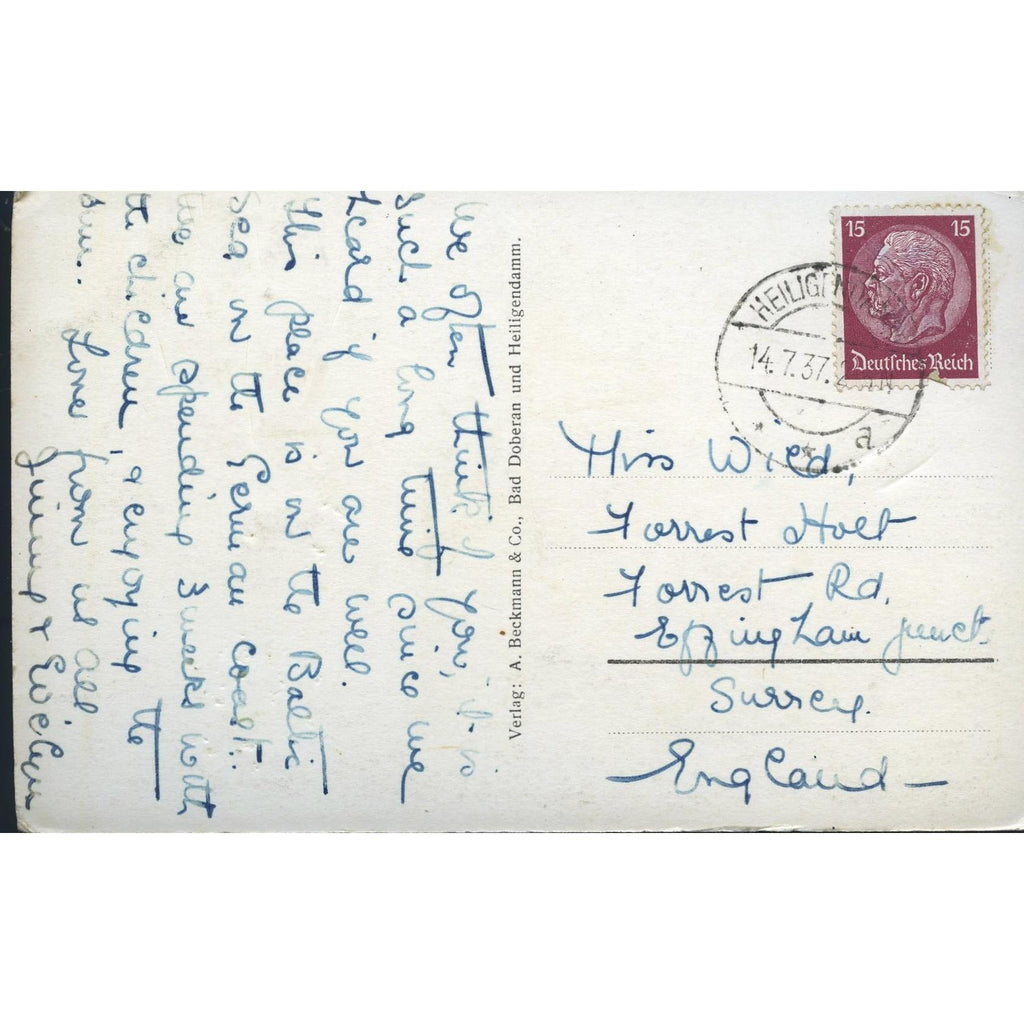 We often think of you, it is
such a long time since we
heard if you are well.
This place is on the Baltic
Sea on the German coast.
We are spending 3 weeks with
the children, & enjoying the
sun. Love from us all,
Jimmy &
Verlag: A. Beckmann & Co., Bad Doberan und Heiligendamm.
15 15
Deutsches Reich
HEILIGENDAMM
14.7.37.
a
Miss Wild,
Forrest Holt
Forrest Rd,
Effingham Junct.
Surrey.
England